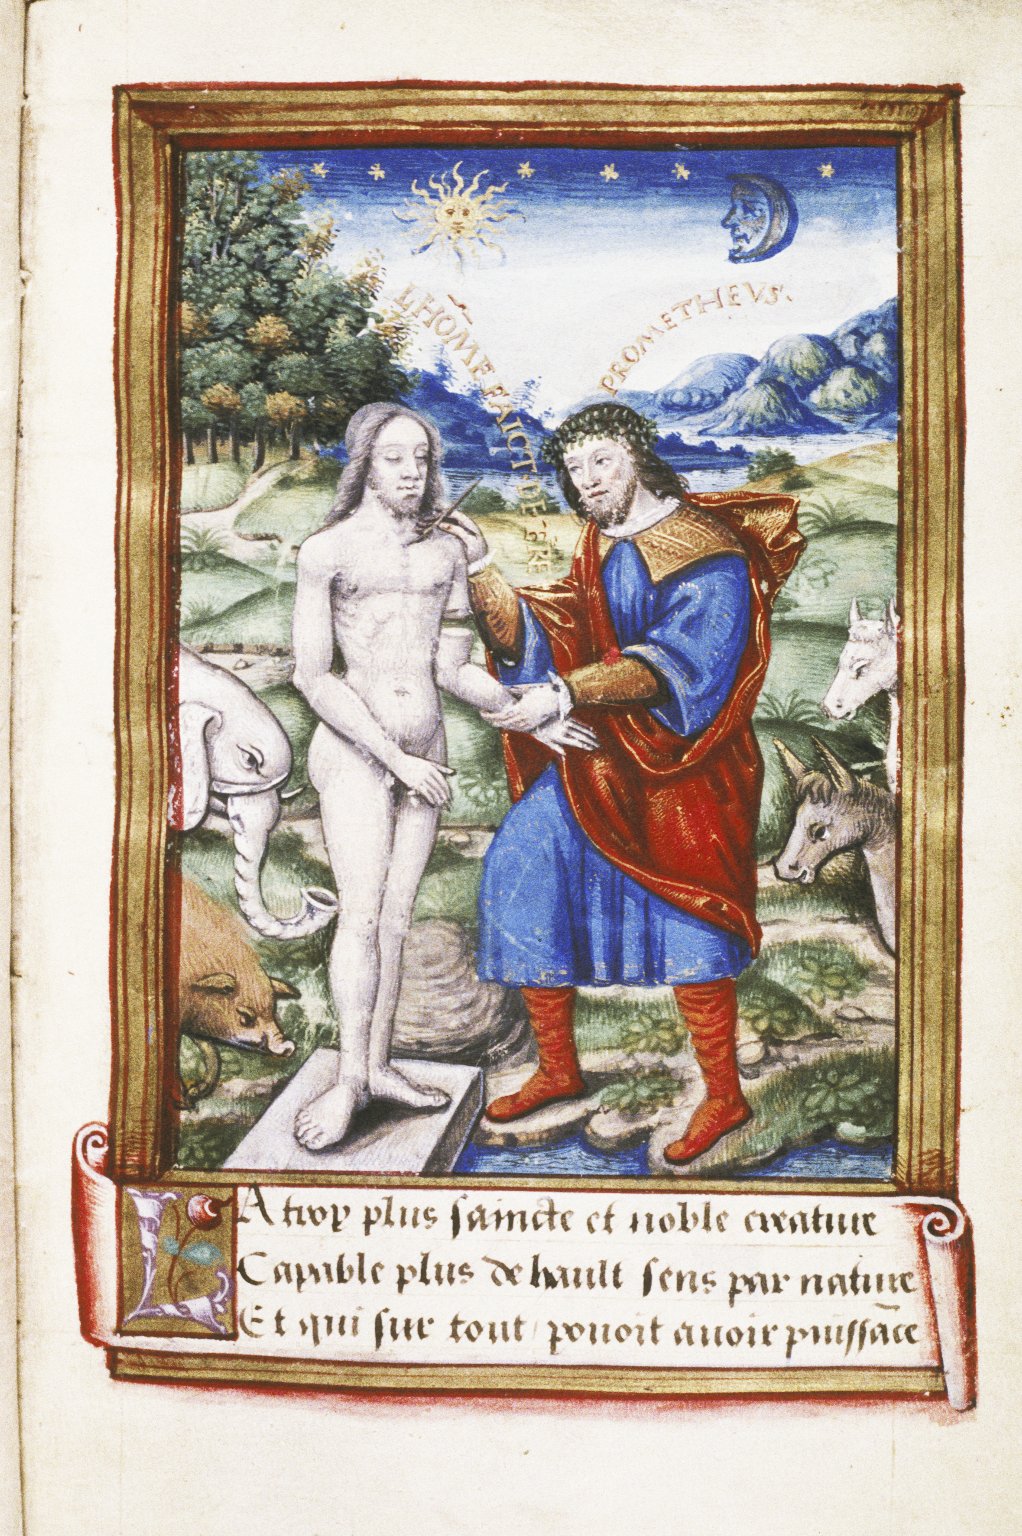 LHOM̃E FAICT·DE·T̃RE
PROMETHEVS·
LA trop plus saincte et noble creature
Capable plus de hault sens par nature
Et qui sur tout pouoit auoir puissãce